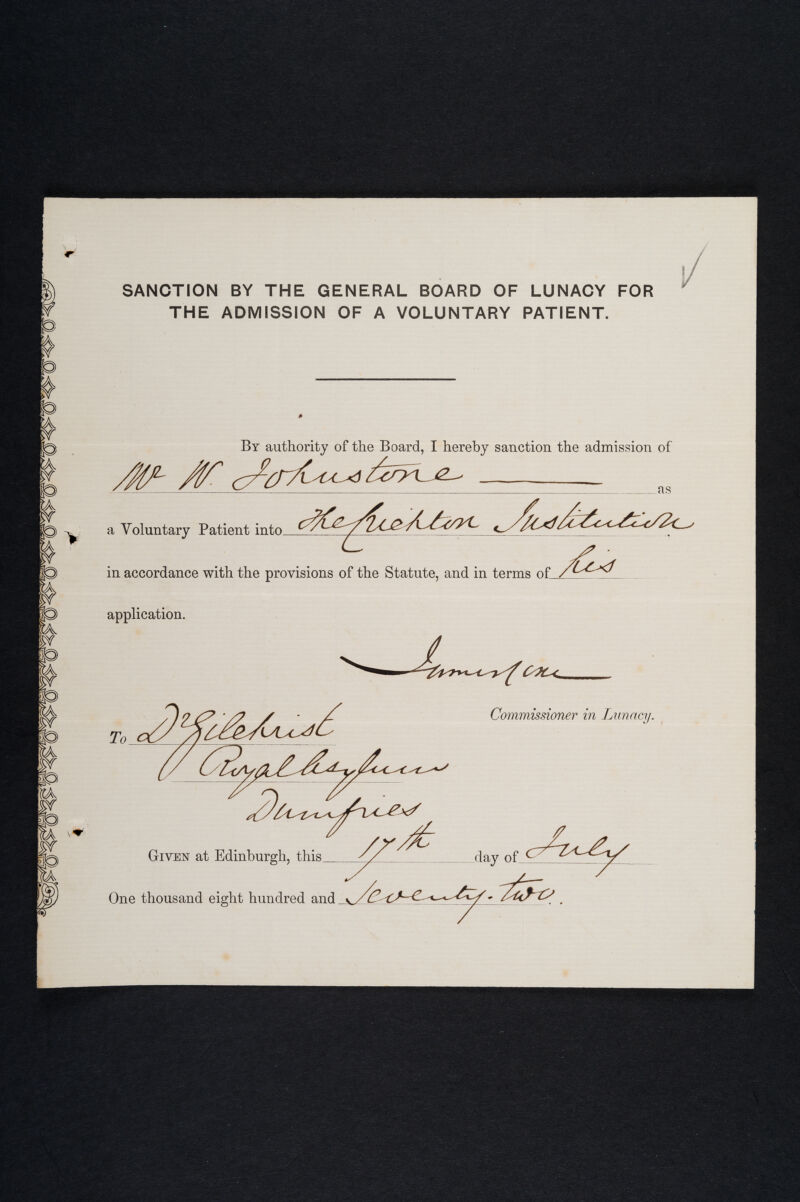 SANCTION BY THE GENERAL BOARD OF LUNACY FOR
THE ADMISSION OF A VOLUNTARY PATIENT.
By authority of the Board, I hereby sanction the admission of
Mr W. Johnstone — as
a Voluntary Patient into The Crichton Institution
in accordance with the provisions of the Statute, and in terms of his
application.
James Coxe
Commissioner in Lunacy.
To Dr Gilchrist
Royal Asylum
Dumfries
Given at Edinburgh, this 17th day of July
One thousand eight hundred and Seventy-two.